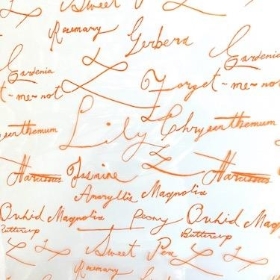 Sweet Pea
Rosemary Gerbera
Gardenia Gardenia
t-me-not Forget-me-not
Lily Chrysanthemum
Narcissus Jasmine Narcissus
Amaryllis Magnolia
Orchid Magnolia Peony Orchid Magnolia
Buttercup Buttercup
Sweet Pea
Rosemary